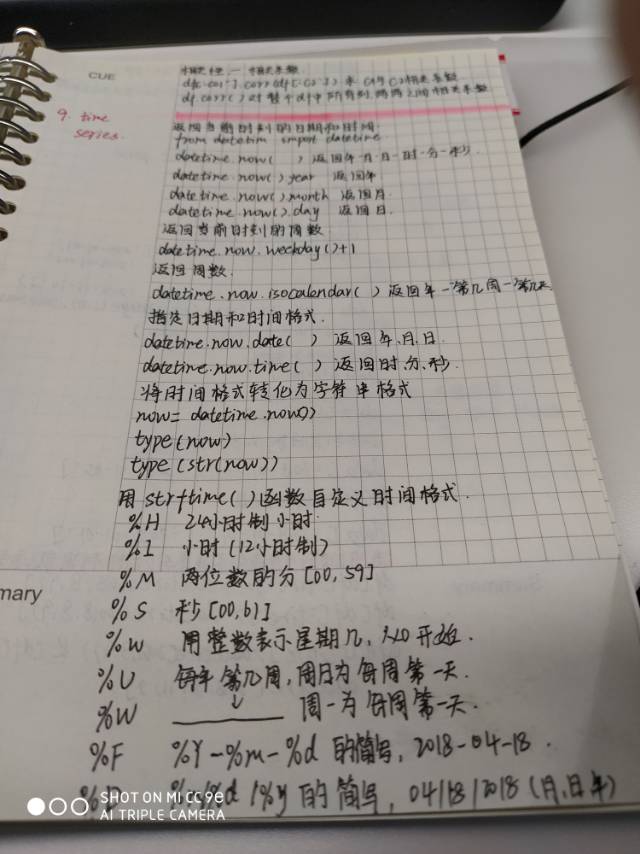 CUE
相关性 — 相关系数
df['col'].corr(df['col']) 求 C1与C2相关系数
df.corr() 对整个df中所有列两两之间相关系数
9. time
series.
返回当前时刻的日期和时间
from datetim import datetime
datetime.now( ) 返回年-月-日-时-分-秒.
datetime.now().year 返回年
datetime.now().month 返回月
datetime.now().day 返回日.
返回当前时刻的周数
datetime.now.weekday()+1
返回周数.
datetime.now.isocalendar( ) 返回年-第几周-第几天
指定日期和时间格式.
datetime.now.date( ) 返回年.月.日.
datetime.now.time( ) 返回时.分.秒.
将时间格式转化为字符串格式
now= datetime.now()
type(now)
type(str(now))
用strftime( )函数自定义时间格式.
%H 24小时制小时
%I 小时(12小时制)
mary
%M 两位数的分[00,59]
%S 秒[00,61]
%w 用整数表示星期几,从0开始.
%U 每年第几周,周日为每周第一天.
%W 周一为每周第一天.
%F %Y-%m-%d的简写, 2018-04-18.
%d/%y的简写, 04/18/2018 (月.日.年)
SHOT ON MI CC 9e
AI TRIPLE CAMERA